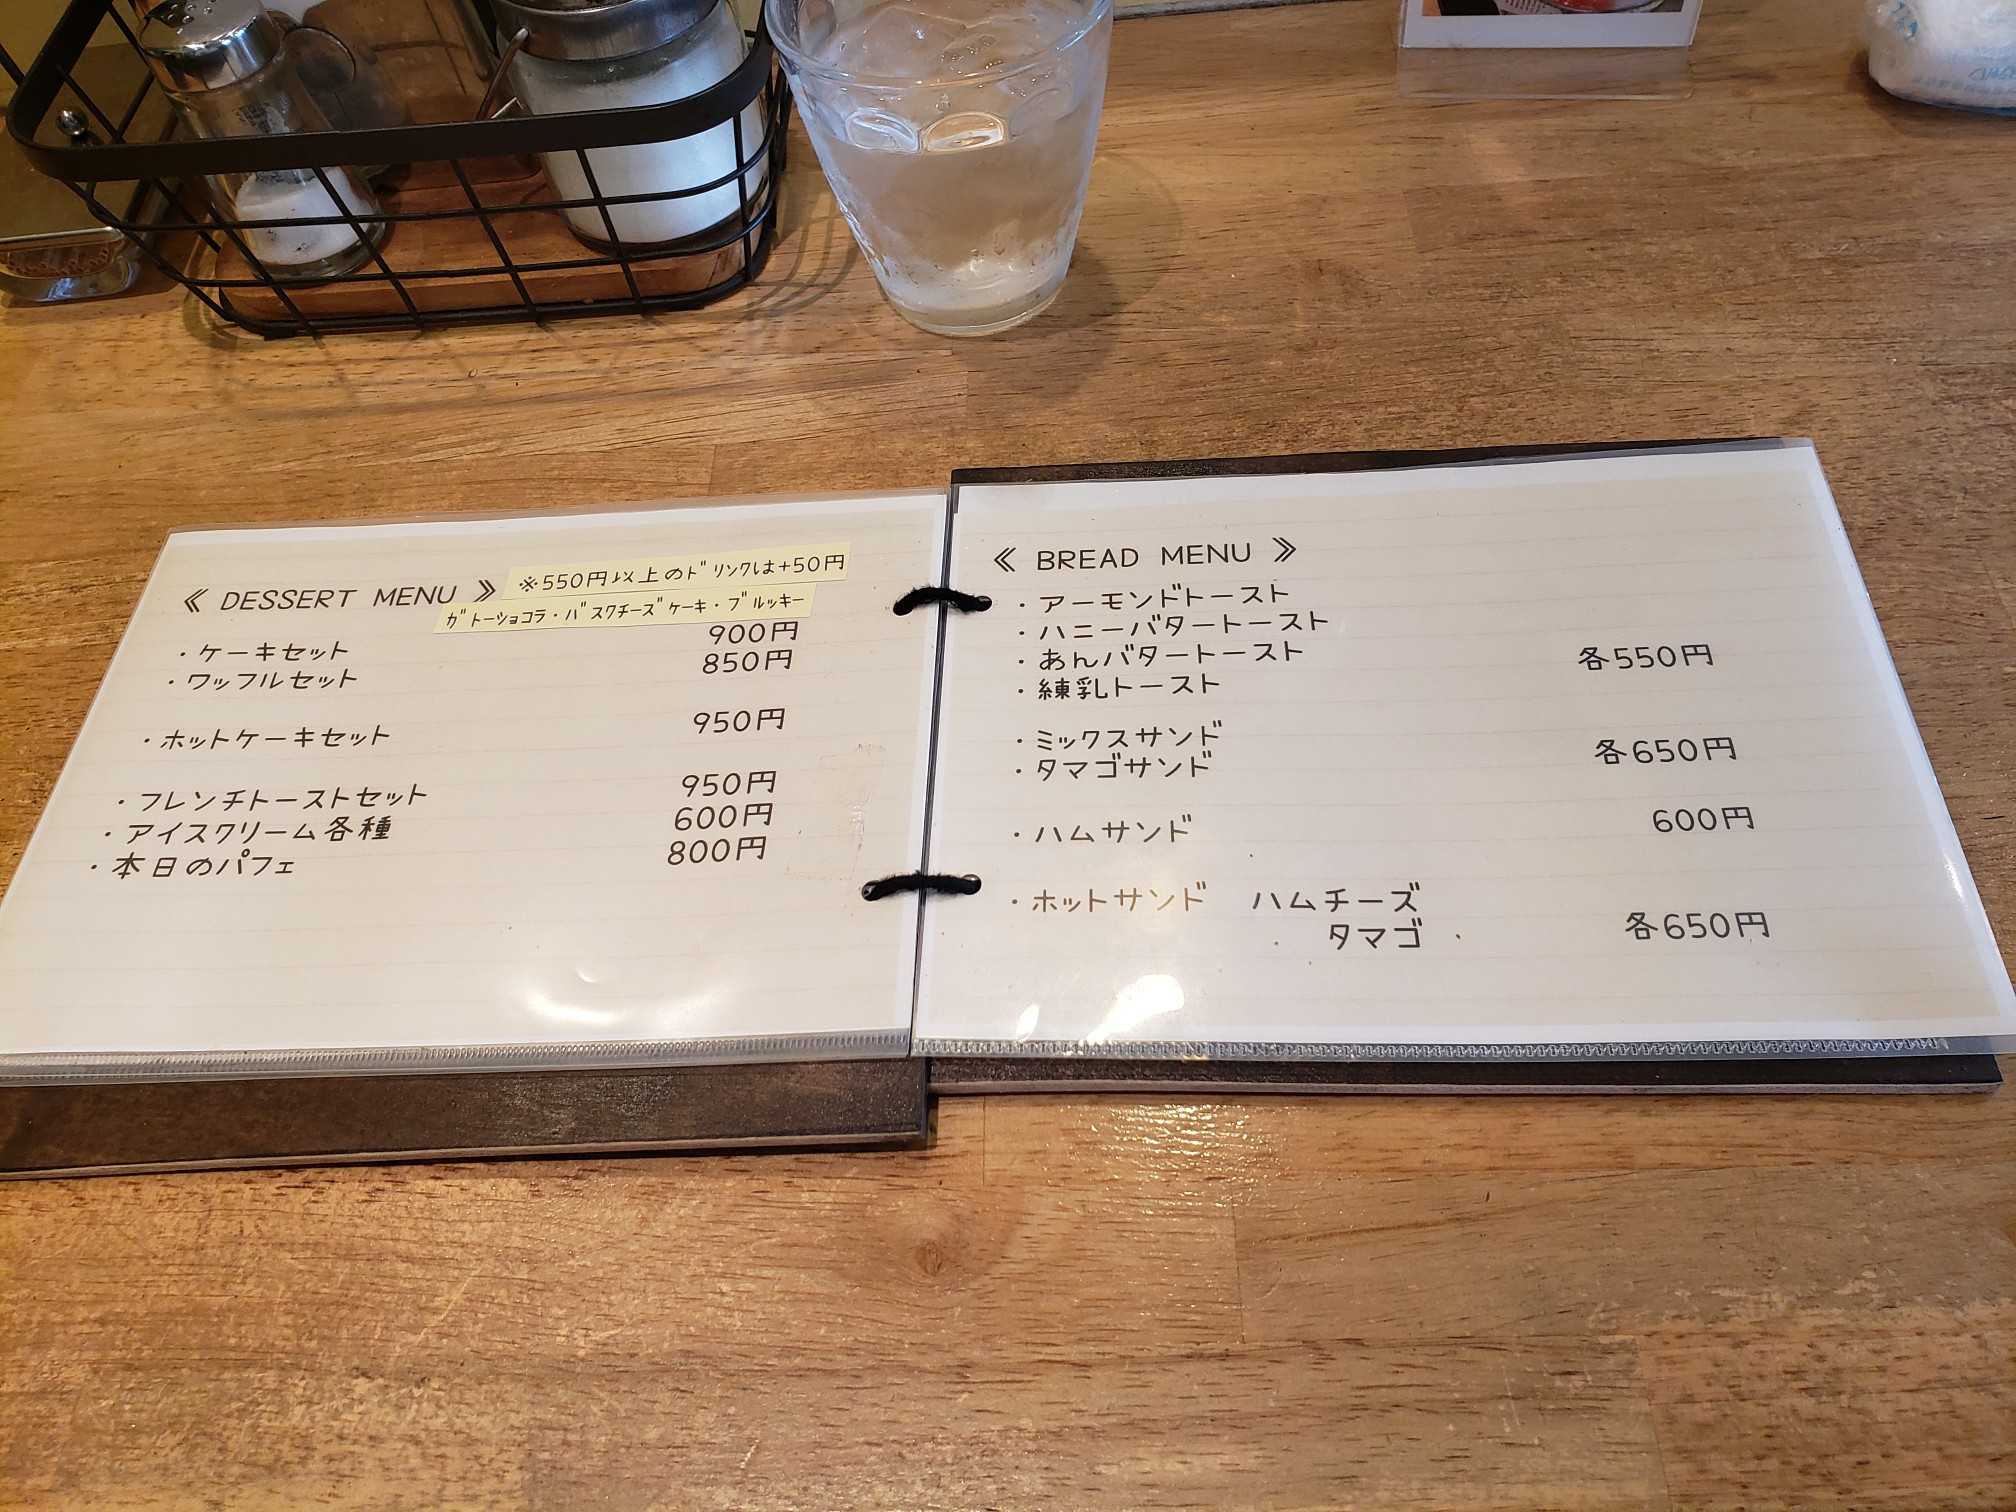 ≪ DESSERT MENU ≫ ※550円以上のドリンクは+50円
ガトーショコラ・バスクチーズケーキ・ブルッキー
・ケーキセット 900円
・ワッフルセット 850円
・ホットケーキセット 950円
・フレンチトーストセット 950円
・アイスクリーム各種 600円
・本日のパフェ 800円
≪ BREAD MENU ≫
・アーモンドトースト
・ハニーバタートースト
・あんバタートースト 各550円
・練乳トースト
・ミックスサンド
・タマゴサンド 各650円
・ハムサンド 600円
・ホットサンド ハムチーズ
タマゴ 各650円